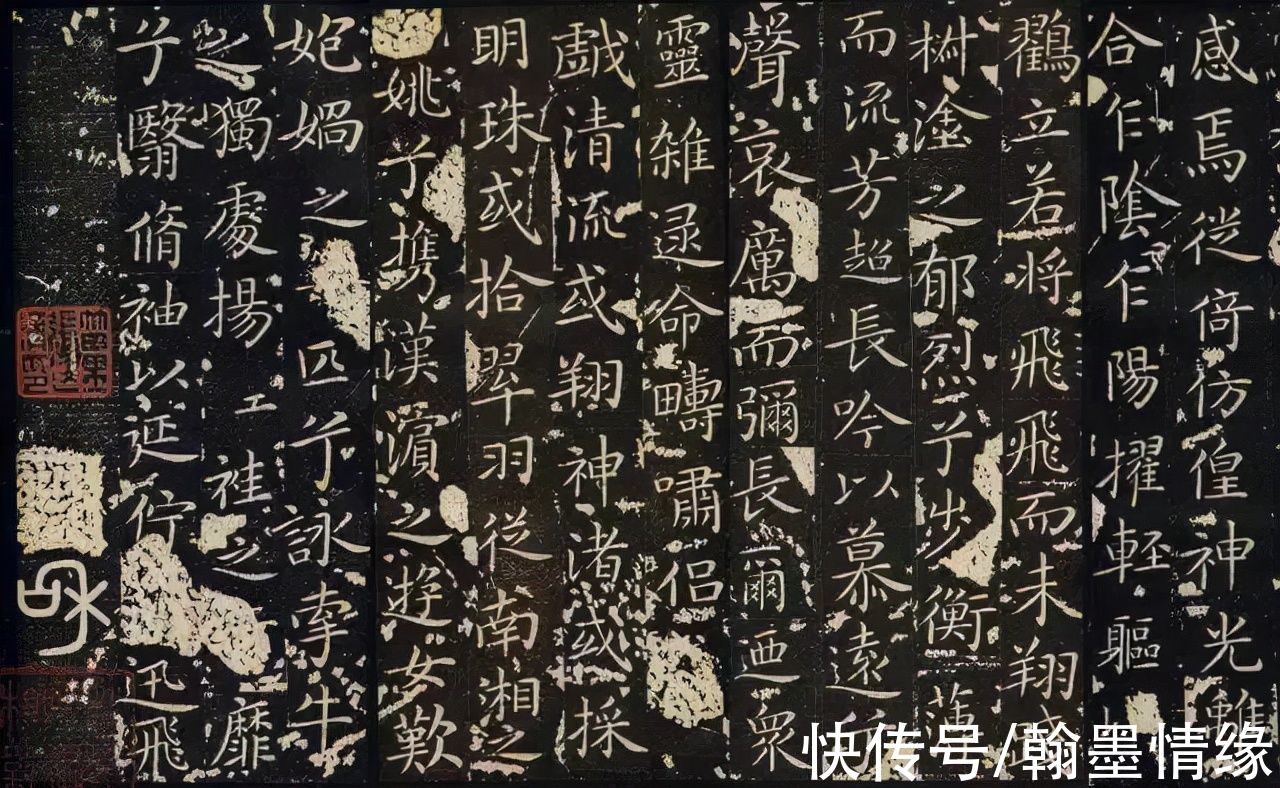 感焉徙倚彷徨神光離
合乍陰乍陽擢輕軀
鶴立若将飛飛而未翔踐
椒塗之郁烈兮步衡薄
而流芳超長吟以慕遠兮
聲哀厲而彌長爾迺眾
靈雜遝命疇嘯侣
戲清流或翔神渚或採
明珠或拾翠羽從南湘之
姚兮携漢濱之遊女歎
妑媧之匹兮詠牽牛
之獨處揚袿之靡
兮翳脩袖以延佇迅飛
快传号/翰墨情缘